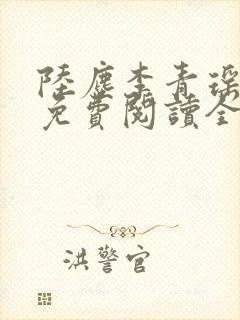 陸塵李青瑶
免費閱讀全
洪警官